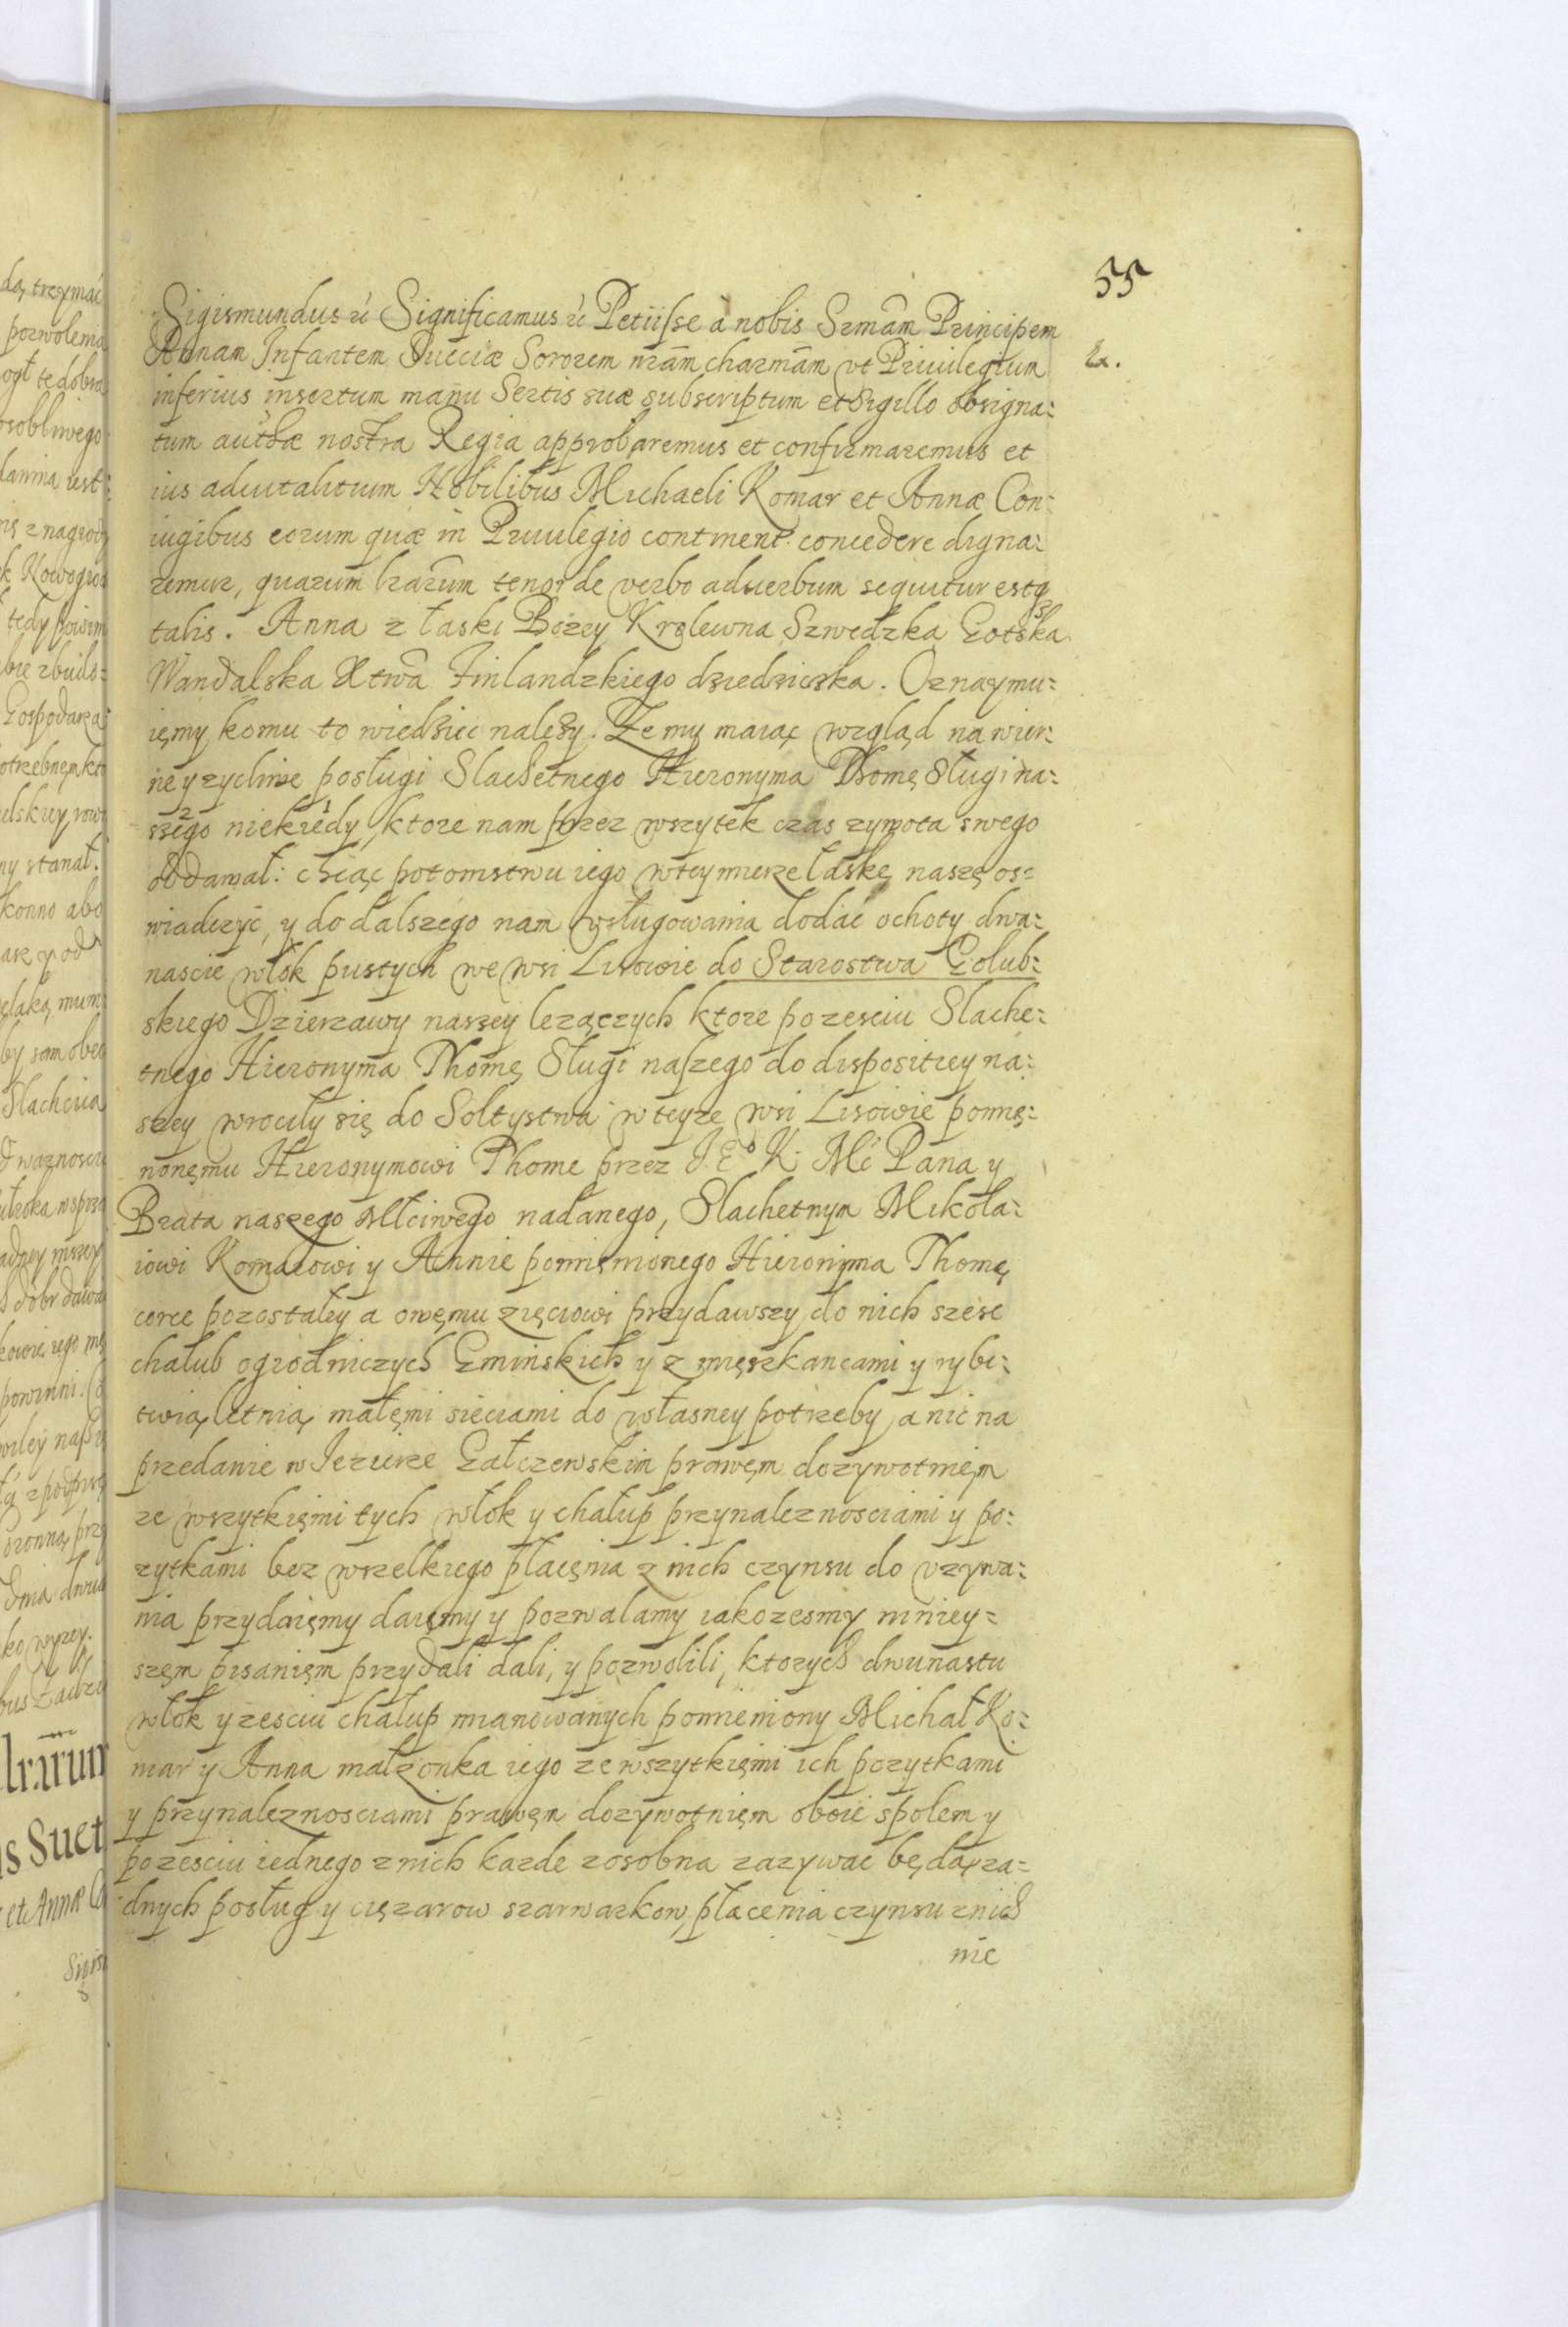 55
Sigismundus etc Significamus etc Petiisse à nobis Srmâm Principem
Annam Infantem Sueciæ Sororem nrâm charmâm vt Priuilegium
inferius insertum manu Sertis suæ subscriptum et Sigillo obsigna:
tum authæ nostra Regia approbaremus et confirmaremus et
ius aduitalitium Nobilibus Michaeli Komar et Annæ Con:
iugibus eorum quæ in Priuilegio continent. concedere digna:
remur, quarum lrarûm tenor de verbo aduerbum sequitur estq
talis. Anna z łaski Bożey Krolewna Szwedzka Gotska
Wandalska Xtwâ Finlandzkiego dziedziczka. Oznaymu:
ięmy komu to wiedziec należy. Ze my maiąc wzgląd na wier:
ne y zycliwe posługi Slachetnego Hieronyma Thomę Sługi na:
szego niekiedy, ktore nam przez wszytek czas zywota swego
oddawał: chcąc potomstwu iego wtey mierze łaskę naszę os:
wiadczyć, y do dalszego nam wsługowania dodać ochoty dwa:
nascie włok pustych we wsi Lisowie do Starostwa Golub:
skiego Dzierzawy naszey lezączych ktore po zesciu Slache:
tnego Hieronyma Thomę Sługi naszego do dispositiey na:
szey wrociły się do Soltystwa w teyze wsi Lisowie pomię:
nionęmu Hieronymowi Thome przez J Eo K Mć Pana y
Brata naszego Młciwego nadanego, Slachetnym Mikoła:
iowi Komarowi y Annie pomięnionego Hieronyma Thomę
corce pozostałey a onęmu zięciowi przydawszy do nich szesc
chałub ogrodniczych Gminskich y z mięszkancami y rybi:
twią letnią małęmi sieciami do własney potrzeby a nic na
przedanie w Iezierze Gałczewskim prawęm dozywotnięm
ze wszytkięmi tych włok y chałup przynaleznosciami y po:
zytkami bez wszelkiego płacęnia z nich czynsu do vzywa:
nia przydaięmy daięmy y pozwalamy iakozesmy mniey:
szęm pisanięm przydali dali, y pozwolili, ktorych dwunastu
włok y zesciu chałup mianowanych pomieniony Michał Ko:
mar y Anna małzonka iego ze wszytkięmi ich pozytkami
y przynaleznosciami prawęm dozywotnięm oboie społem y
po zesciu iednego z nich kazde zosobna zazywac będą, za:
dnych posług y cięzarow szarwarkow, płacenia czynsu z nich
nie